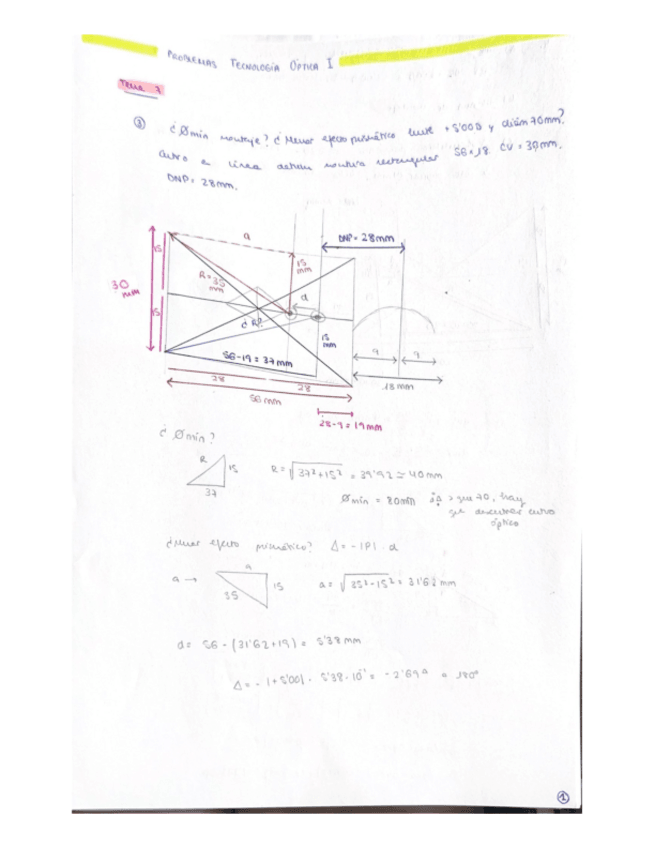 PROBLEMAS TECNOLOGÍA ÓPTICA I
Tema 7
③ ¿Ømin montaje? ¿Menor efecto prismático lente +5'00D y diám 70mm?
Centro en línea datum montura rectangular 56x18 CV = 30mm.
DNP = 28mm.
a
DNP = 28mm
15
15
mm
R = 35
mm
30
mm
d
¿R?
15
15
mm
56-19 = 37mm
9
9
28
28
18mm
56mm
28-9 = 19mm
¿Ømin?
R
15
37
R = √37²+15² = 39'92 ≃ 40mm
Ømin = 80mm > que 70, hay
que descentrar centro
óptico
¿Menor efecto prismático? Δ = -|P| · d
a →
a
15
35
a = √35²-15² = 31'62 mm
d = 56 - (31'62+19) = 5'38mm
Δ = -|+5'00| · 5'38·10⁻¹ = -2'69Δ a 180°
①